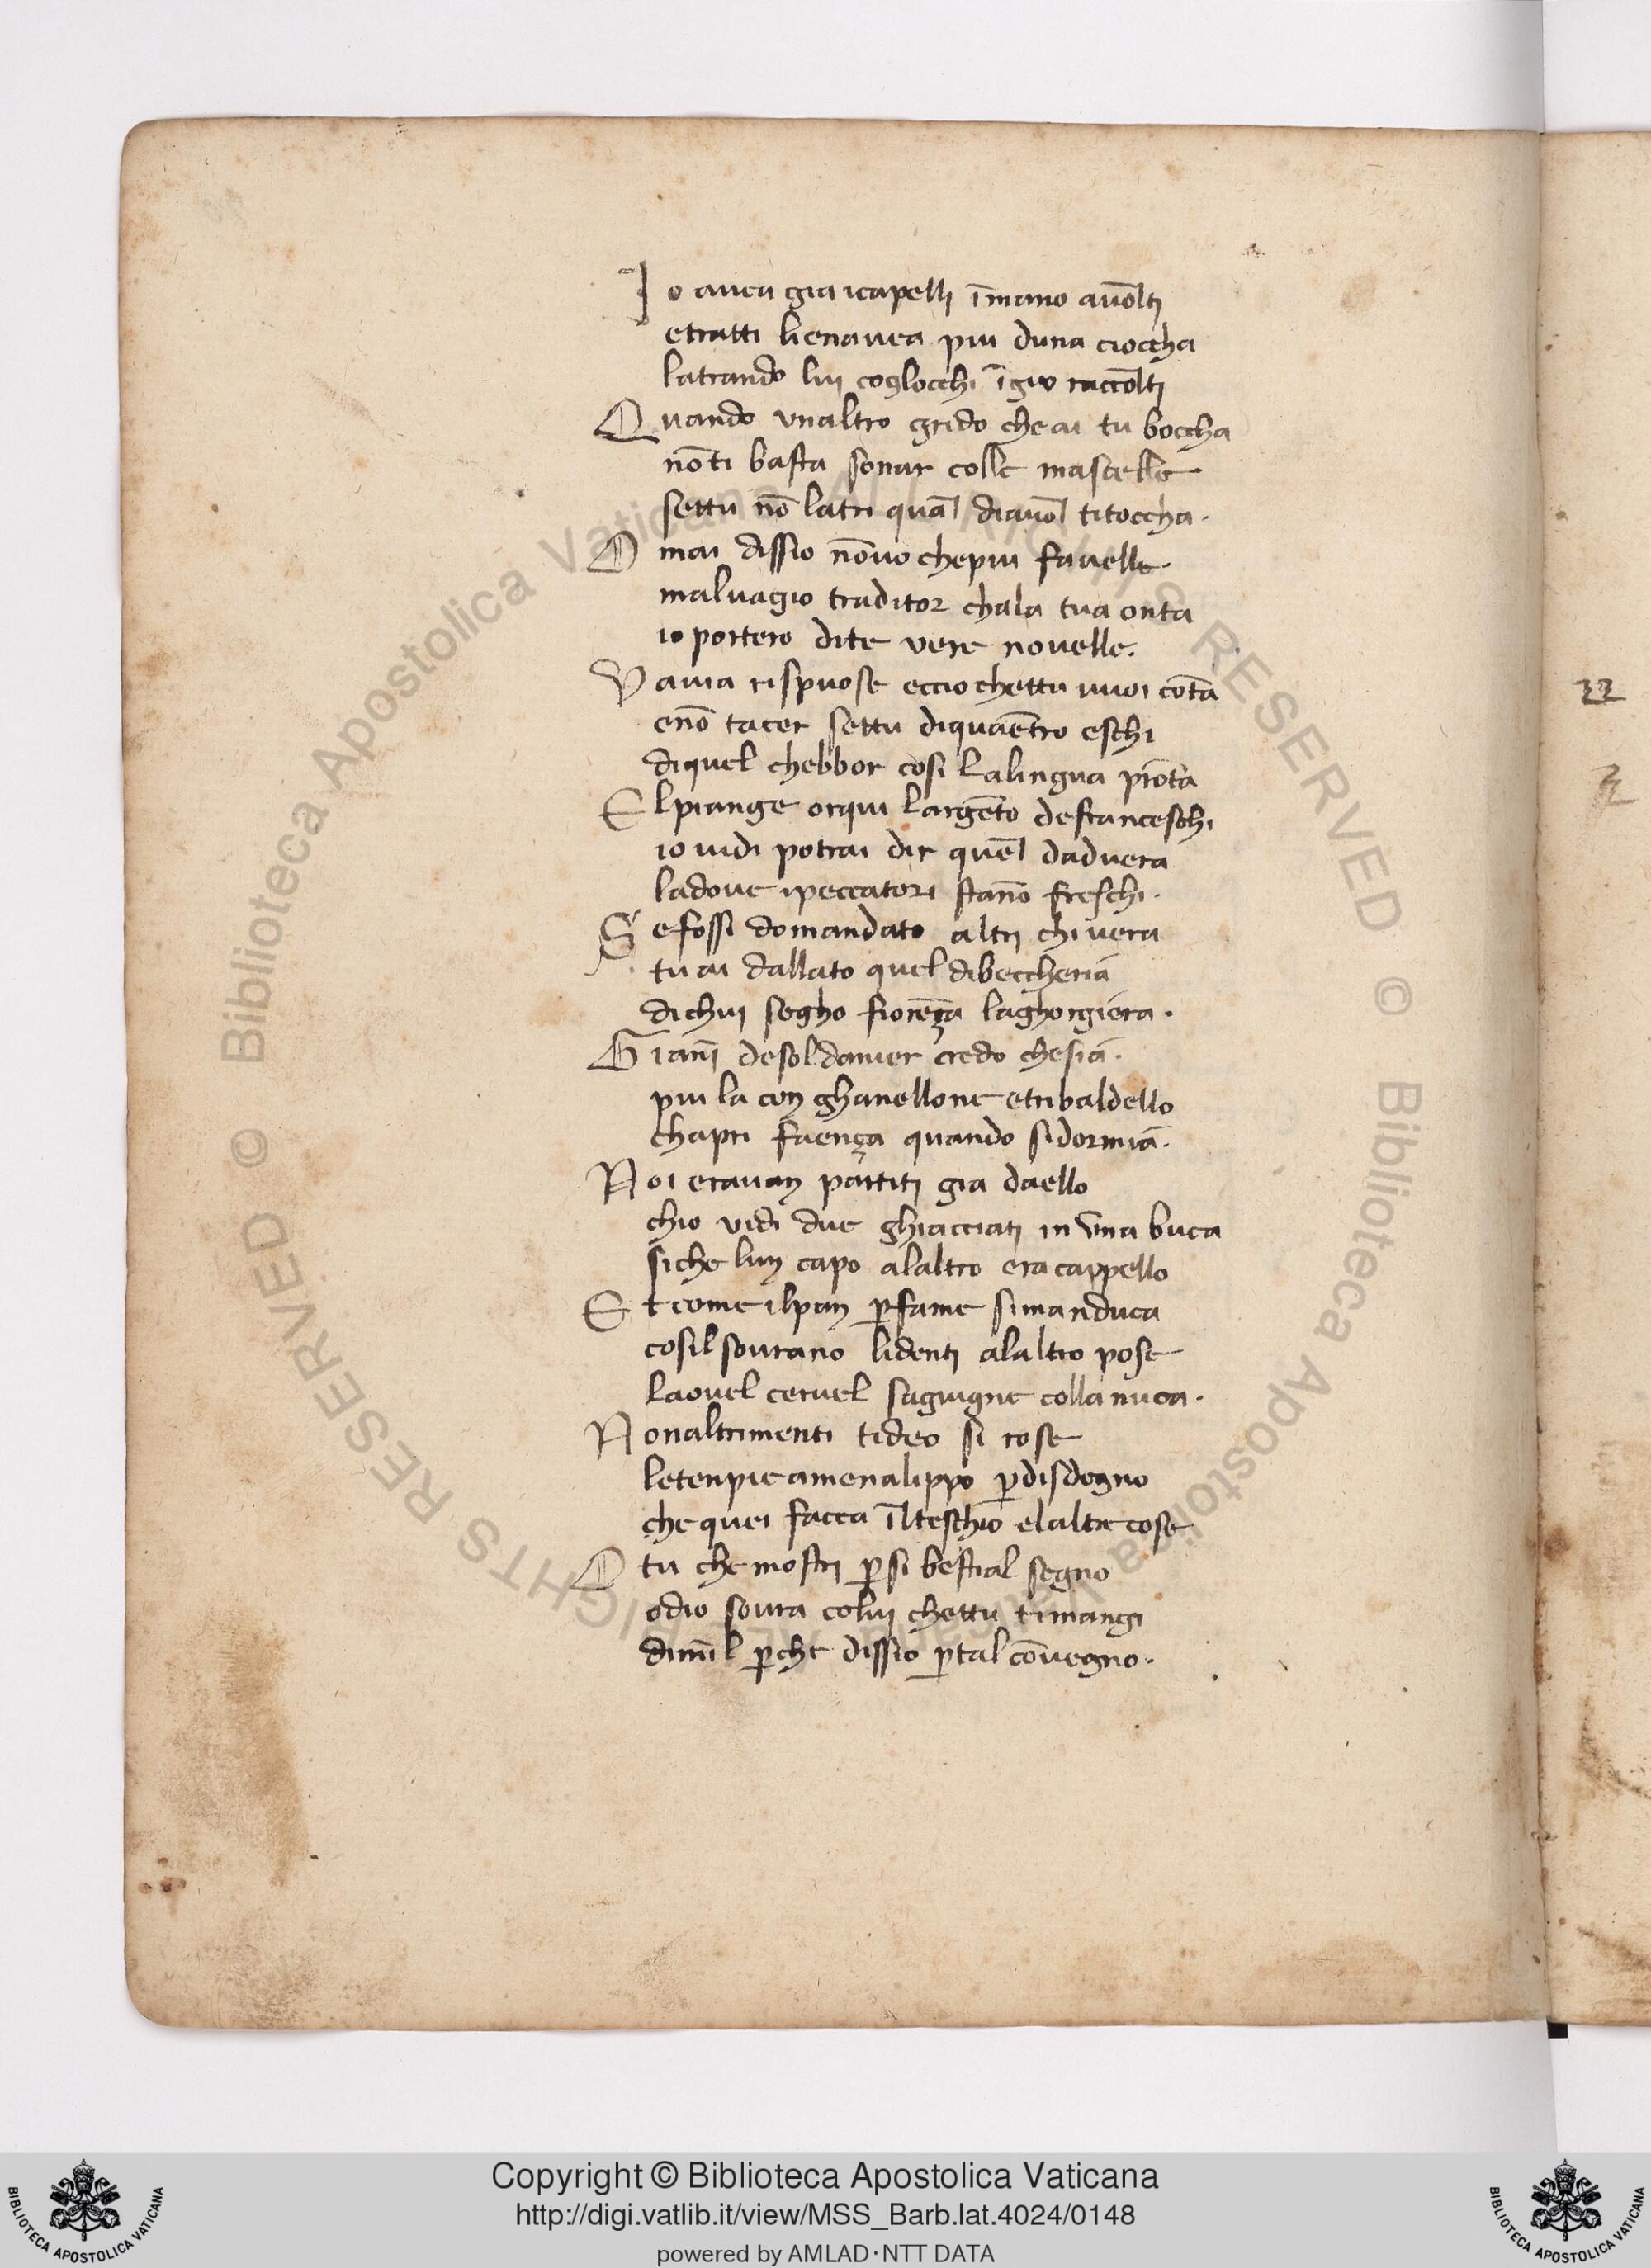 Io avea gia icapelli ī mano avolti
etratti lienavea piu duna cioccha
latrando lui coglocchi ī giu raccolti
Quando vnaltro grido che ai tu boccha
nō ti basta sonar colle mascelle
settu nō latri qual diavol titoccha.
O mai dissio nōvo chepiu favelle.
malvagio traditor chala tua onta
io portero dite vere novelle.
Vavia rispuose eccio chettu vuoi cōta
enō tacer settu diquaētro eschi
diquel chebbor cosi lalingua prōta
El piange orqui largēto defranceschi
io vidi potrai dir quel daduera
ladove ipeccatori stāno freschi.
Se fossi domandato altri chi vera
tu ai dallato quel dibeccheria
dichui segho fiorēça laghorgiera.
Gianī desoldanier credo chesia.
piu la con ghanellone etribaldello
chapri faença quando sidormia.
Noi eravan partiti gia daello
chio vidi due ghiacciati in vna buca
siche lun capo alaltro era cappello
Et come ilpan ꝑfame simanduca
cosil sourano lidenti alaltro pose
laouel ceruel sagiugne colla nuca.
Non altrimenti tideo si rose
le tenpie amenalippo ꝑdisdegno
che quei facea īlteschio elaltre cose
O tu che mostri ꝑsi bestial segno
odio soura colui chettu timangi
dimīl ꝑche dissio ꝑtal cōvegno.
Copyright © Biblioteca Apostolica Vaticana
http://digi.vatlib.it/view/MSS_Barb.lat.4024/0148
powered by AMLAD·NTT DATA
BIBLIOTECA APOSTOLICA VATICANA
BIBLIOTECA APOSTOLICA VATICANA